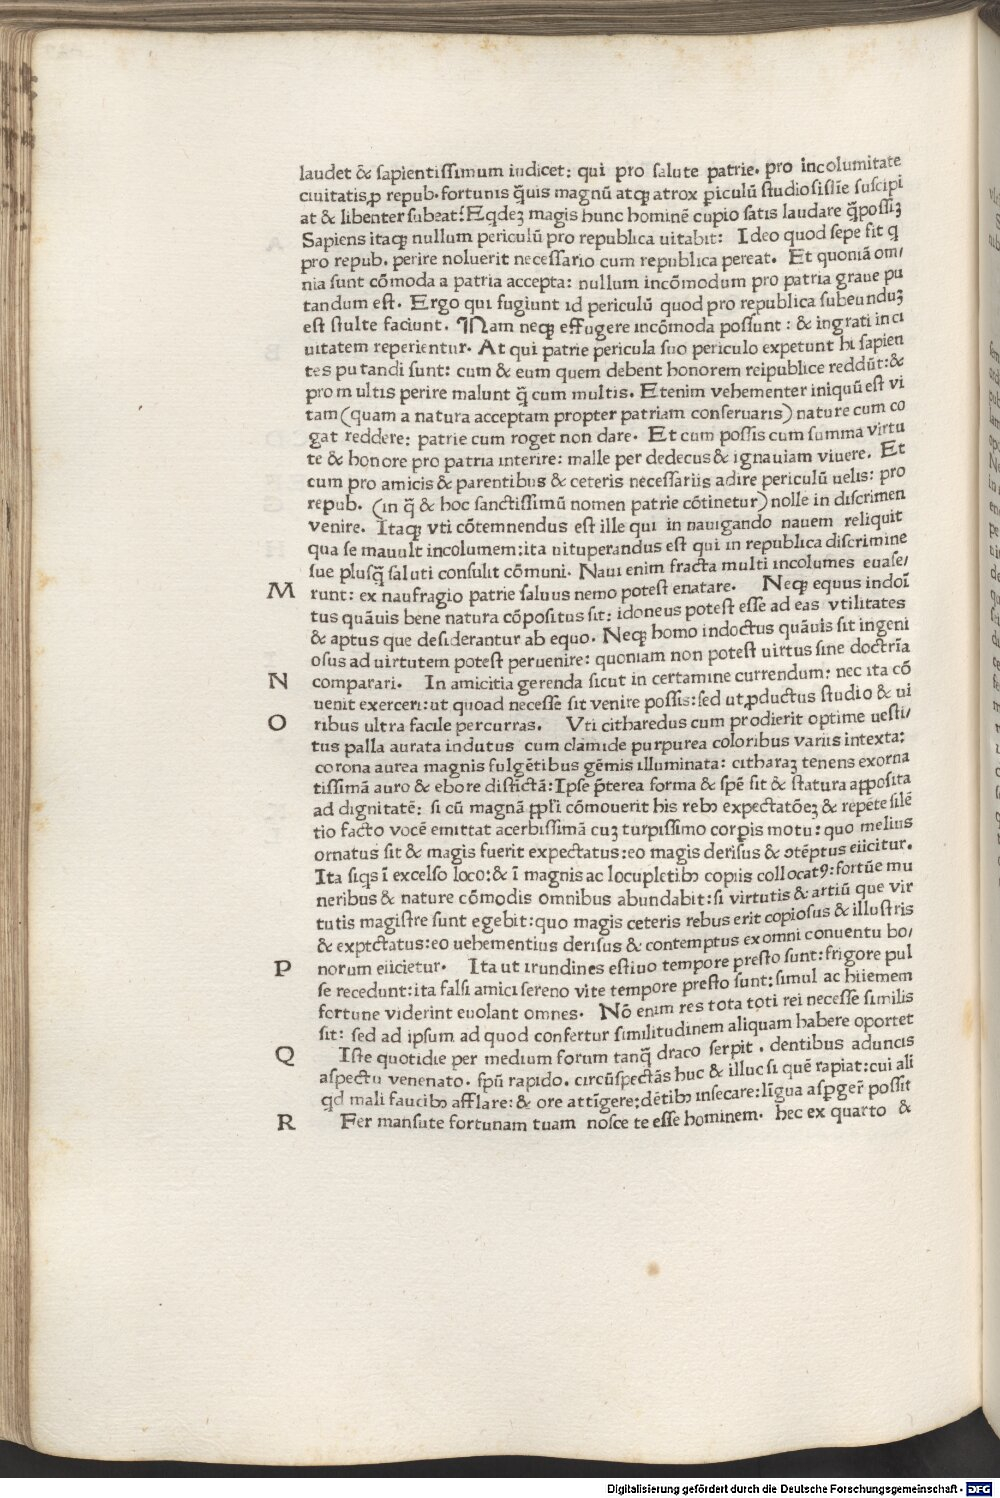 laudet & sapientissimum iudicet: qui pro salute patrie. pro incolumitate
ciuitatis ꝓ repub. fortunis q̄uis magnū atqꝫ atrox piculū studiosisīe suscipi
at & libenter subeat: Eqdeꝫ magis hunc hominē cupio satis laudare q̄possiꝫ
Sapiens itaqꝫ nullum periculū pro republica uitabit: Ideo quod sepe fit q
pro repub. perire noluerit necessario cum republica pereat. Et quoniā om/
nia sunt cōmoda a patria accepta: nullum incōmodum pro patria graue pu
tandum est. Ergo qui fugiunt id periculū quod pro republica subeunduꝫ
est stulte faciunt. Nam neqꝫ effugere incōmoda possunt: & ingrati in ci
uitatem reperientur. At qui patrie pericula suo periculo expetunt hi sapien
tes putandi sunt: cum & eum quem debent honorem reipublice reddūt: &
pro multis perire malunt q̄ cum multis. Etenim vehementer iniquū est vi
tam (quam a natura acceptam propter patriam conseruaris) nature cum co
gat reddere: patrie cum roget non dare. Et cum possis cum summa virtu
te & honore pro patria interire: malle per dedecus & ignauiam viuere. Et
cum pro amicis & parentibus & ceteris necessariis adire periculū uelis: pro
repub. (in q̄ & hoc sanctissimū nomen patrie cōtinetur) nolle in discrimen
venire. Itaqꝫ vti cōtemnendus est ille qui in nauigando nauem reliquit
qua se mauult incolumem: ita uituperandus est qui in republica discrimine
sue plusq̄ saluti consulit cōmuni. Naui enim fracta multi incolumes euase/
M runt: ex naufragio patrie saluus nemo potest enatare. Neqꝫ equus indoī
tus quāuis bene natura cōpositus sit: idoneus potest esse ad eas vtilitates
& aptus que desiderantur ab equo. Neqꝫ homo indoctus quāuis sit ingeni
osus ad uirtutem potest peruenire: quoniam non potest uirtus sine doctrīa
N comparari. In amicitia gerenda sicut in certamine currendum: nec ita cō
uenit exerceri: ut quoad necesse sit venire possis: sed ut ꝓductus studio & ui
O ribus ultra facile percurras. Vti citharedus cum prodierit optime uesti/
tus palla aurata indutus cum clamide purpurea coloribus variis intexta:
corona aurea magnis fulgētibus gēmis illuminata: citharaꝫ tenens exorna
tissimā auro & ebore distīctā: Ipse p̄terea forma & spē sit & statura apposita
ad dignitatē: si cū magnā ppl'i cōmouerit his rebꝰ expectatōeꝫ & repēte silē
tio facto vocē emittat acerbissimā cuꝫ turpissimo corpis motu: quo melius
ornatus sit & magis fuerit expectatus: eo magis derisus & ↄtēptus eiicitur.
Ita siqs ī excelso loco: & ī magnis ac locupletibꝰ copiis collocatꝰ: fortūe mu
neribus & nature cōmodis omnibus abundabit: si virtutis & artiū que vir
tutis magistre sunt egebit: quo magis ceteris rebus erit copiosus & illustris
& exptctatus: eo uehementius derisus & contemptus ex omni conuentu bo/
P norum eiicietur. Ita ut irundines estiuo tempore presto sunt: frigore pul
se recedunt: ita falsi amici sereno vite tempore presto sunt: simul ac hiiemem
fortune viderint euolant omnes. Nō enim res tota toti rei necesse similis
sit: sed ad ipsum ad quod confertur similitudinem aliquam habere oportet
Q Iste quotidie per medium forum tanq̄ draco serpit. dentibus aduncis
aspectu venenato. spū rapido. circūspectās huc & illuc si quē rapiat: cui ali
qd mali faucibꝰ afflare: & ore attīgere: dētibꝰ insecare: līgua aspger̄ possit
R Fer mansute fortunam tuam nosce te esse hominem. hec ex quarto &
Digitalisierung gefördert durch die Deutsche Forschungsgemeinschaft - DFG